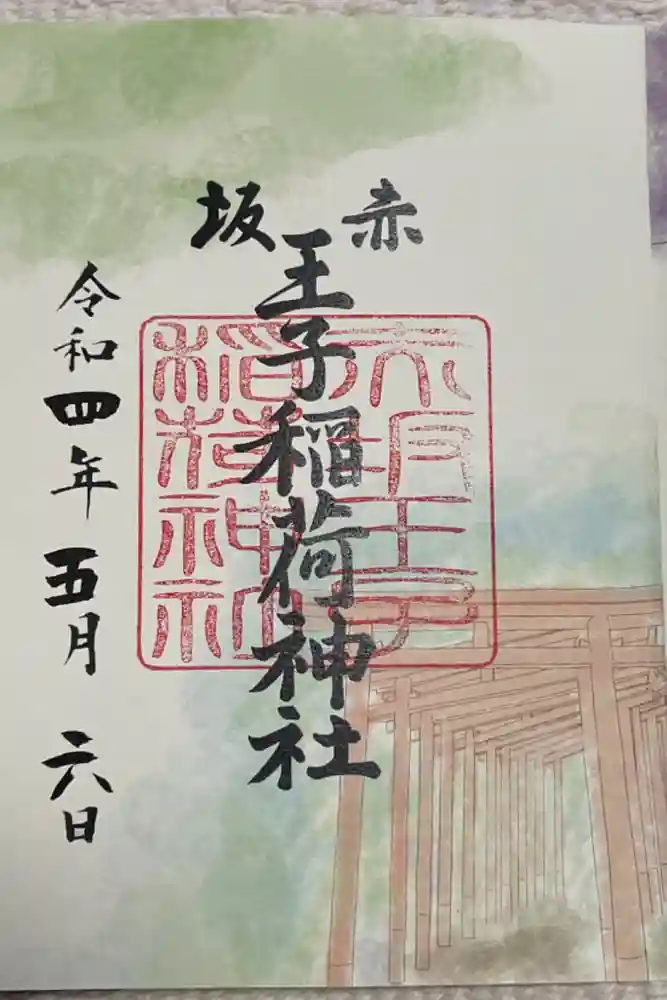 赤坂
王子稲荷神社
令和四年五月六日